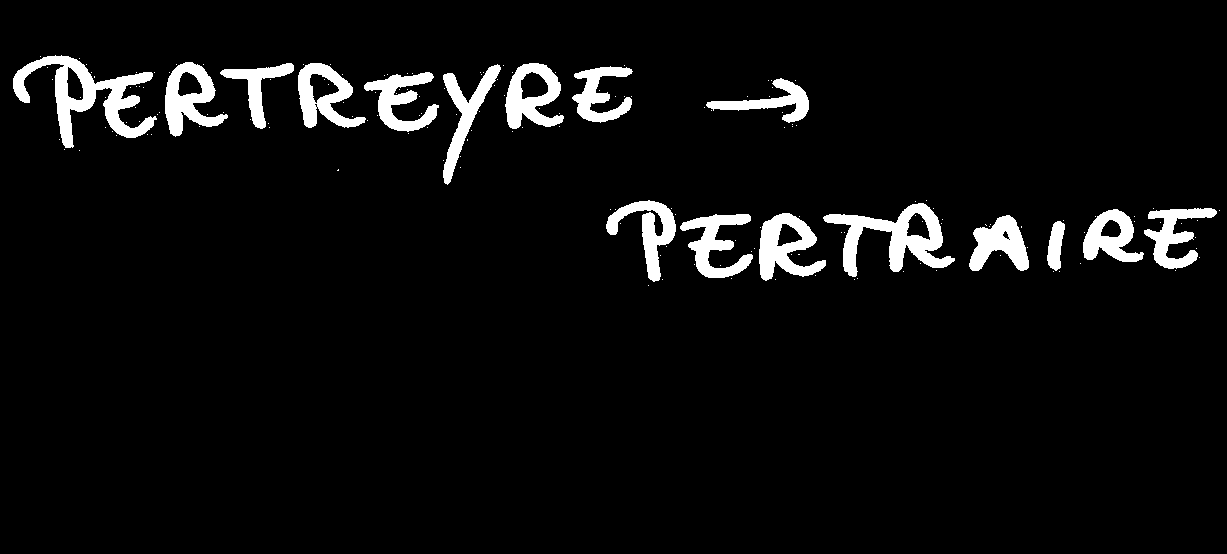 PERTREYRE →
PERTRAIRE